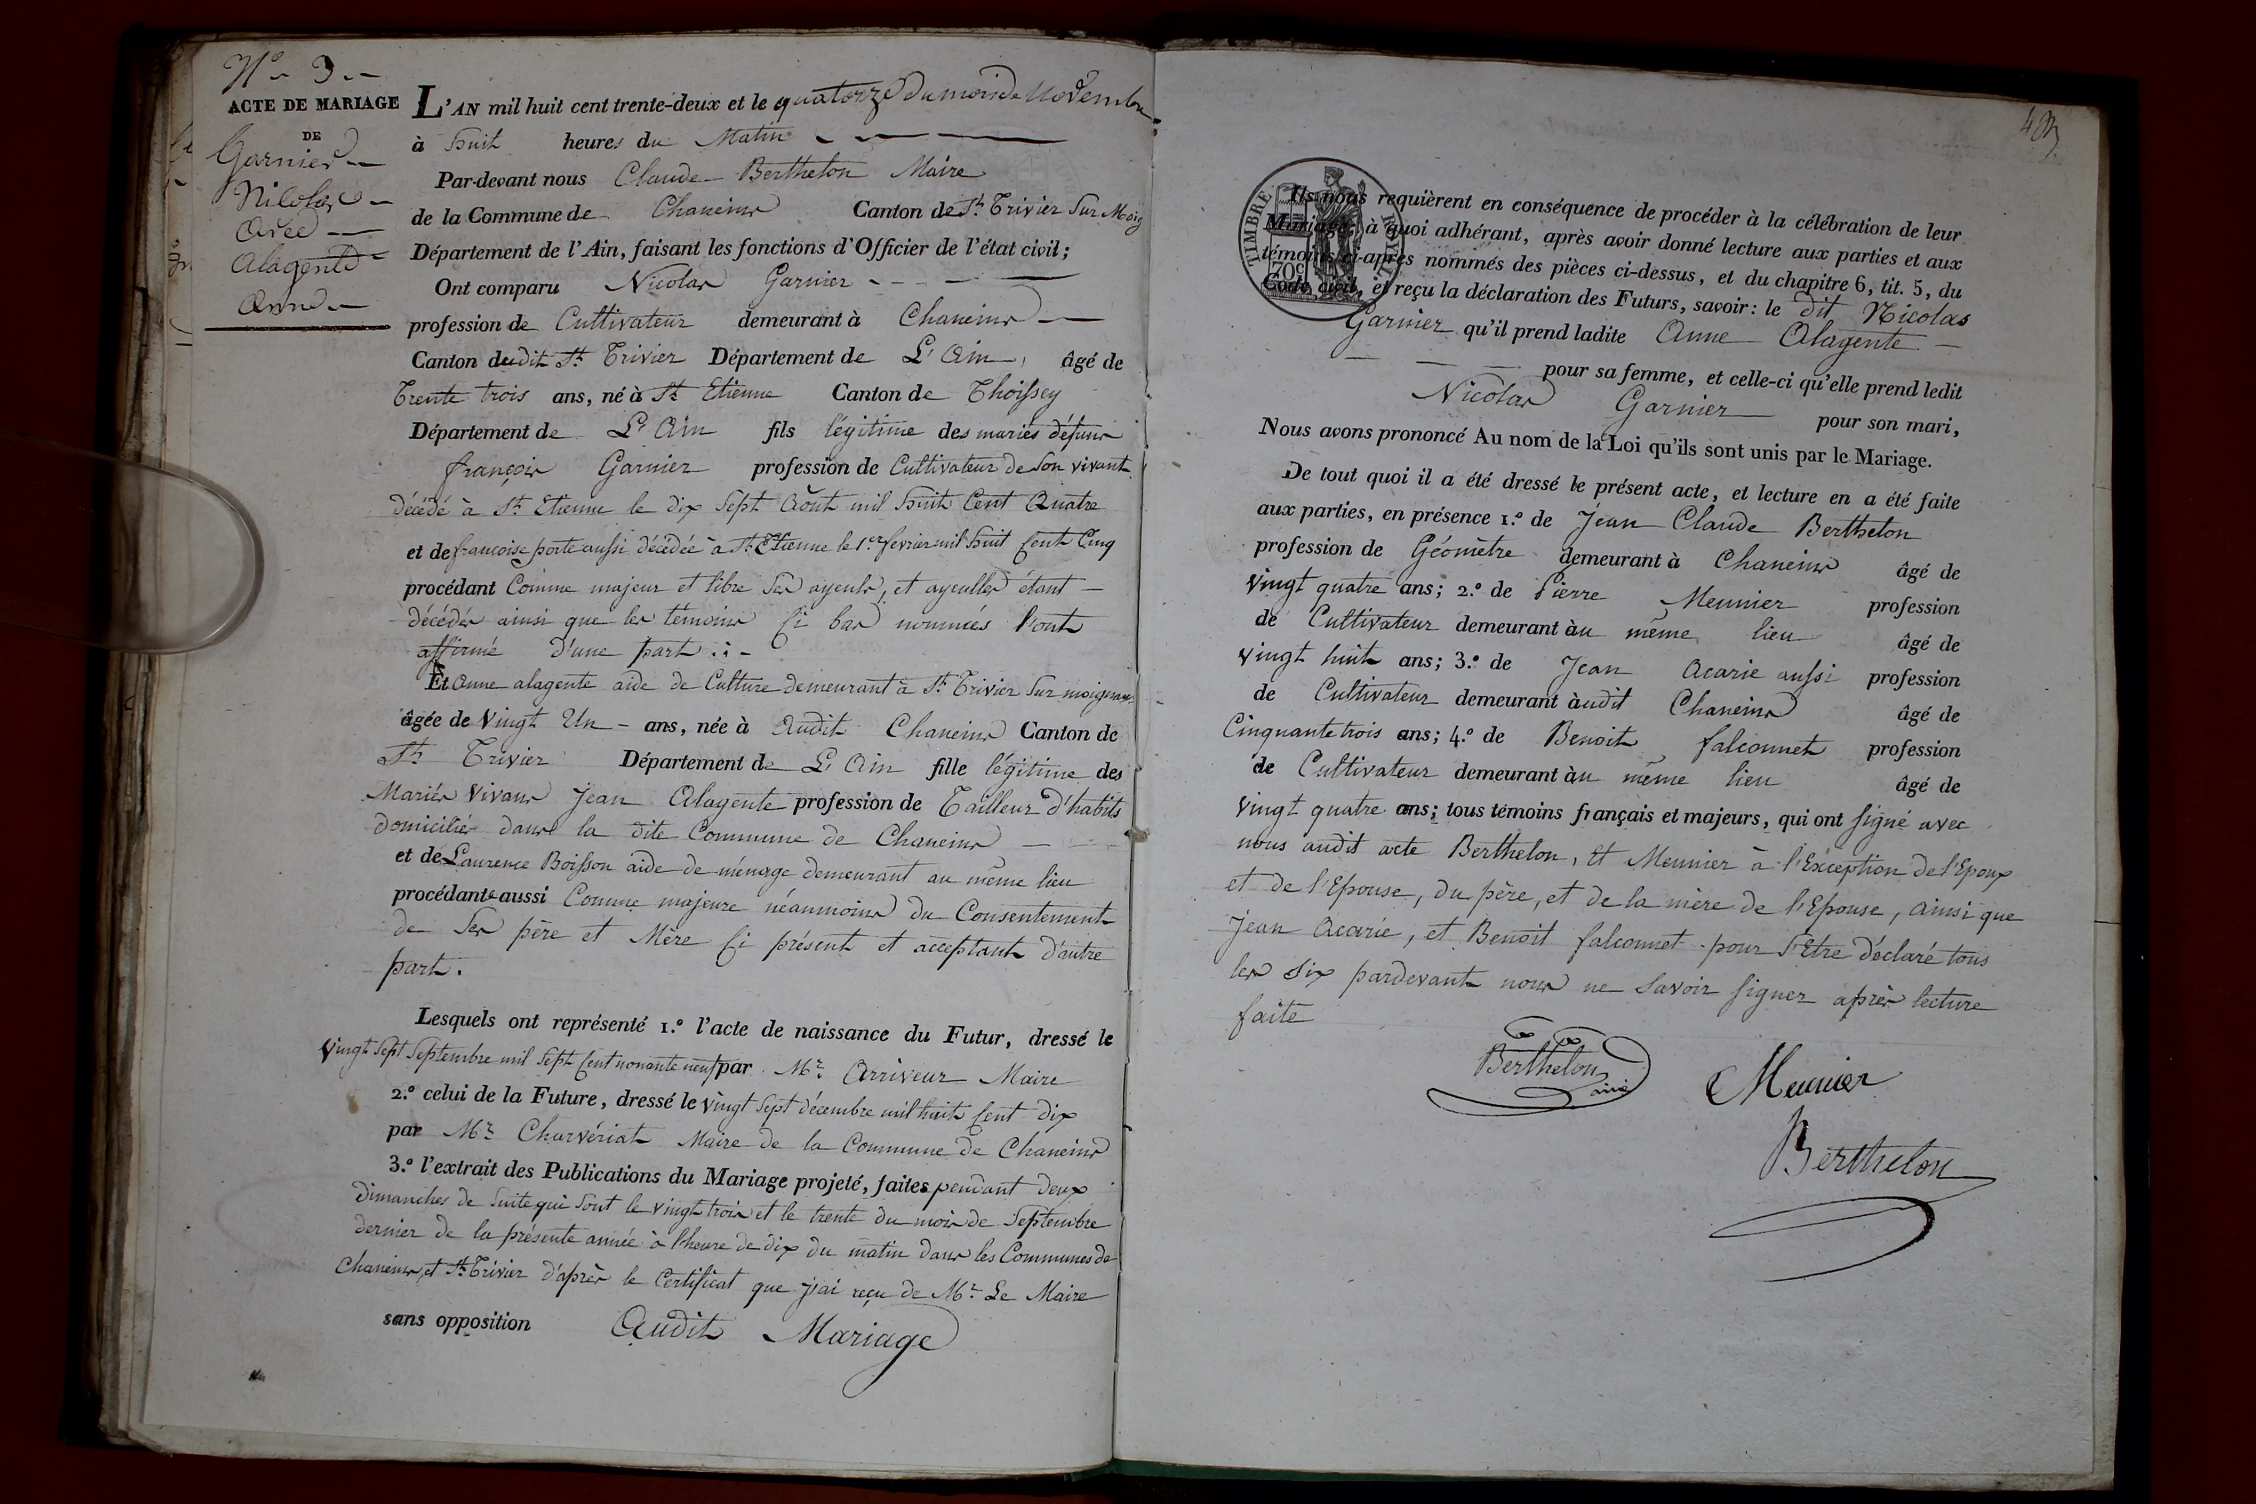 N.o 3
ACTE DE MARIAGE
DE
Garnier
Nicolas
Avec
Alagente
Anne
L'AN mil huit cent trente-deux et le quatorze du mois de Novembre
à huit heures du Matin
Par-devant nous Claude Berthelon Maire
de la Commune de Chaneins Canton de St. Trivier Sur Moig
Département de l'Ain, faisant les fonctions d'Officier de l'état civil;
Ont comparu Nicolas Garnier
profession de Cultivateur demeurant à Chaneins
Canton dudit St. Trivier Département de L'Ain, âgé de
Trente trois ans, né à St Etienne Canton de Thoissey
Département de L'Ain fils légitime des mariés défuns
françois Garnier profession de Cultivateur de son vivant
décédé à St. Etienne le dix Sept Août mil huit Cent Quatre
et de françoise porte aussi décédée à St. Etienne le 1.er fevrier mil huit Cent Cinq
procédant Comme majeur et libre Ses ayeuls, et ayeulles étant
décédés ainsi que les témoins Ci bas nommés l'ont
affirmé d'une part
Et Anne alagente aide de Culture demeurant à St. Trivier Sur moignans
âgée de Vingt Un ans, née à Audit Chaneins Canton de
St. Trivier Département de L'Ain fille légitime des
Mariés Vivans Jean Alagente profession de Tailleur d'habits
domiciliés dans la dite Commune de Chaneins
et de Laurence Boisson aide de ménage demeurant au même lieu
procédante aussi Comme majeure néanmoins du Consentement
de Ses père et Mère Ci présent et acceptant d'autre
part.
Lesquels ont représenté 1.o l'acte de naissance du Futur, dressé le
Vingt Sept Septembre mil Sept Cent nonante neuf par Mr. Arriveur Maire
2.o celui de la Future, dressé le Vingt Sept décembre mil huit Cent dix
par Mr. Charvériat Maire de la Commune de Chaneins
3.o l'extrait des Publications du Mariage projeté, faites pendant deux
dimanches de Suite qui Sont le vingt trois et le trente du mois de Septembre
dernier de la présente année à l'heure de dix du matin dans les Communes de
Chaneins, et St. Trivier d'après le Certificat que j'ai reçu de Mr. Le Maire
sans opposition Audit Mariage
TIMBRE ROYAL
70c
Ils nous requièrent en conséquence de procéder à la célébration de leur
Mariage; à quoi adhérant, après avoir donné lecture aux parties et aux
témoins ci-après nommés des pièces ci-dessus, et du chapitre 6, tit. 5, du
Code civil, et reçu la déclaration des Futurs, savoir: le dit Nicolas
Garnier qu'il prend ladite Anne Alagente
pour sa femme, et celle-ci qu'elle prend ledit
Nicolas Garnier pour son mari,
Nous avons prononcé Au nom de la Loi qu'ils sont unis par le Mariage.
De tout quoi il a été dressé le présent acte, et lecture en a été faite
aux parties, en présence 1.o de Jean Claude Berthelon
profession de Géomètre demeurant à Chaneins âgé de
Vingt quatre ans; 2.o de Pierre Meunier profession
de Cultivateur demeurant àu même lieu âgé de
Vingt huit ans; 3.o de Jean Acarie aussi profession
de Cultivateur demeurant àudit Chaneins âgé de
Cinquante trois ans; 4.o de Benoit falconnet profession
de Cultivateur demeurant àu même lieu âgé de
Vingt quatre ans; tous témoins français et majeurs, qui ont signé avec
nous audit acte Berthelon, Et Meunier à l'Exception de l'Epoux
et de l'Epouse, du père, et de la mère de l'Epouse, ainsi que
Jean Acarie, et Benoit falconnet pour S'Etre déclaré tous
les six pardevant nous ne Savoir Signer après lecture
faite
Berthelon
Meunier
Berthelon